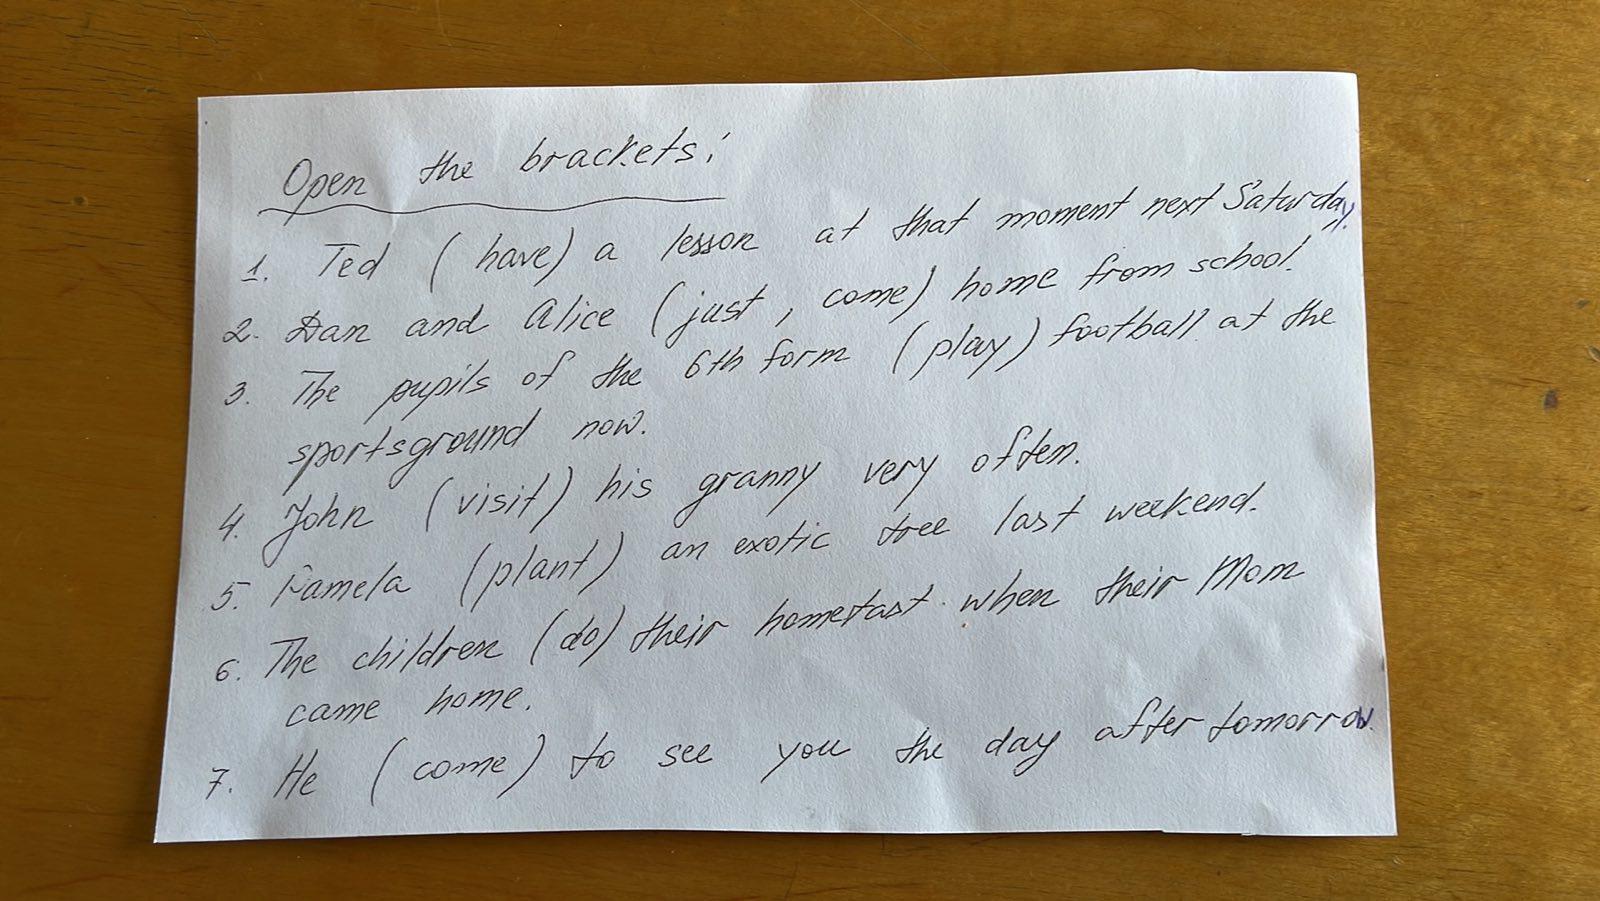 Open the brackets:
1. Ted (have) a lesson at that moment next Saturday.
2. Dan and Alice (just, come) home from school.
3. The pupils of the 6th form (play) football at the
sportsground now.
4. John (visit) his granny very often.
5. Pamela (plant) an exotic tree last weekend.
6. The children (do) their hometast when their Mom
came home.
7. He (come) to see you the day after tomorrow.